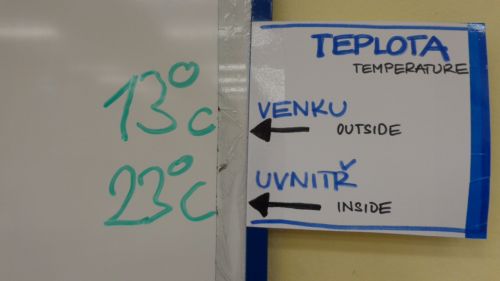 TEPLOTA
TEMPERATURE
13°C VENKU
OUTSIDE
23°C UVNITŘ
INSIDE